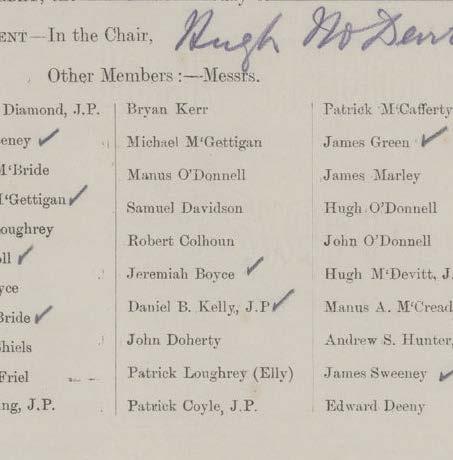 ENT—In the Chair, Hugh
Other Members :—Messrs.
Diamond, J.P. Bryan Kerr Patrick M‘Cafferty
eeney ✓ Michael M‘Gettigan James Green ✓
M‘Bride Manus O’Donnell James Marley
M‘Gettigan ✓ Samuel Davidson Hugh O’Donnell
oughrey Robert Colhoun John O’Donnell
ll ✓ Jeremiah Boyce ✓ Hugh M‘Devitt, J.
yce Daniel B. Kelly, J.P ✓ Manus A. M‘Cread
Bride ✓ John Doherty Andrew S. Hunter,
Shiels Patrick Loughrey (Elly) James Sweeney ✓
Friel Patrick Coyle, J.P. Edward Deeny
ng, J.P.